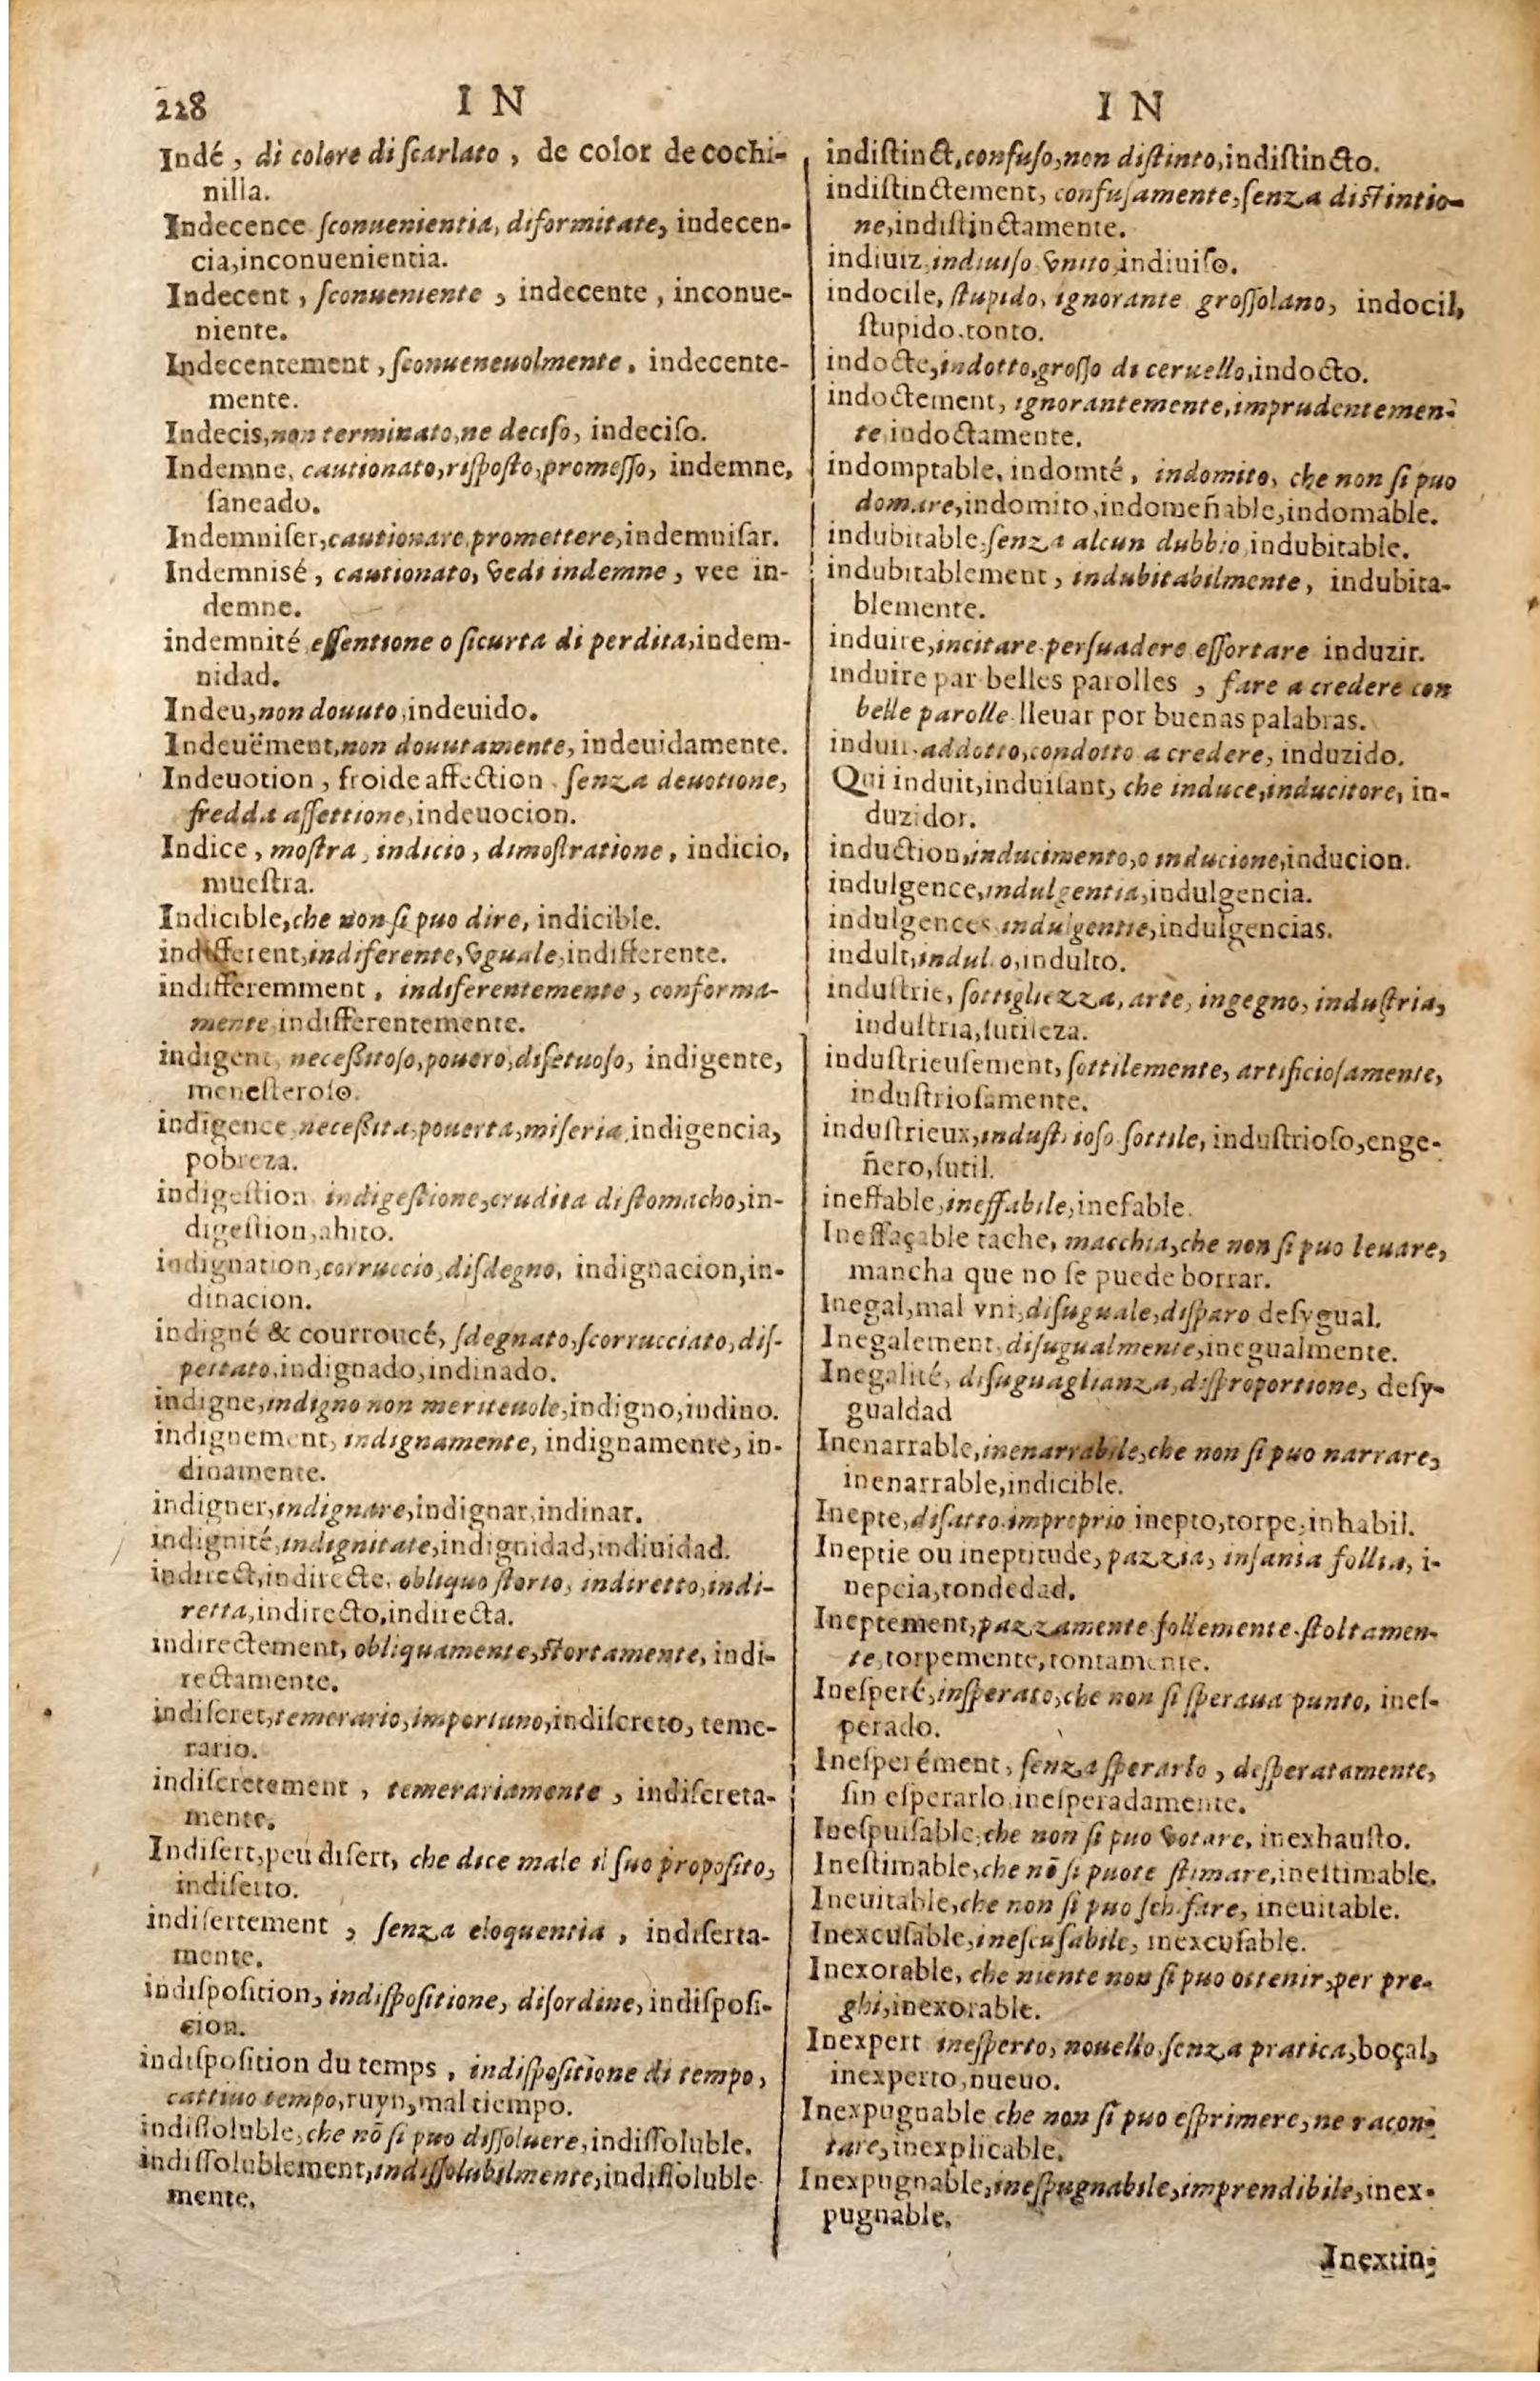 228
I N
Indé, di colore di ſcarlato, de color de cochi-
nilla.
Indecence ſconuenientia, diformitate, indecen-
cia,inconuenientia.
Indecent, ſconueniente, indecente, inconue-
niente.
Indecentement, ſconueneuolmente, indecente-
mente.
Indecis,non terminato,ne deciſo, indeciſo.
Indemne, cautionato,riſpoſto,promeſſo, indemne,
ſaneado.
Indemniſer,cautionare,promettere,indemniſar.
Indemnisé, cautionato, vedi indemne, vee in-
demne.
indemnité eſſentione o ſicurta di perdita,indem-
nidad.
Indeu,non douuto,indeuido.
Indeuëment,non douutamente, indeuidamente.
Indeuotion, froide affection. ſenza deuotione,
fredda affettione,indeuocion.
Indice, moſtra, indicio, dimoſtratione, indicio,
mueſtra.
Indicible,che non ſi puo dire, indicible.
indifferent,indiferente,vguale,indifferente.
indifferemment, indiferentemente, conforma-
mente indifferentemente.
indigent, neceßitoſo,pouero,diſetuoſo, indigente,
meneſteroſo.
indigence neceßita,pouerta,miſeria,indigencia,
pobreza.
indigeſtion indigeſtione,crudita di ſtomacho,in-
digeſtion,ahito.
indignation,corruccio,diſdegno, indignacion,in-
dinacion.
indigné & courroucé, ſdegnato,ſcorrucciato,diſ-
pettato,indignado,indinado.
indigne,indigno non meriteuole,indigno,indino.
indignement, indignamente, indignamente, in-
dinamente.
indigner,indignare,indignar,indinar.
indignité,indignitate,indignidad,indiuidad.
indirect,indirecte, obliquo ſtorto, indiretto,indi-
retta,indirecto,indirecta.
indirectement, obliquamente,ſtortamente, indi-
rectamente.
indiſcret,temerario,importuno,indiſcreto, teme-
rario.
indiſcretement, temerariamente, indiſcreta-
mente.
Indiſert,peu diſert, che dice male il ſuo propoſito,
indiſerto.
indiſertement, ſenza eloquentia, indiſerta-
mente.
indiſpoſition, indiſpoſitione, diſordine, indiſpoſi-
cion.
indiſpoſition du temps, indiſpoſitione di tempo,
cattiuo tempo,ruyn,mal tiempo.
indiſſoluble,che nō ſi puo diſſoluere,indiſſoluble.
indiſſolublement,indiſſolubilmente,indiſſoluble-
mente.
I N
indiſtinct,confuſo,non diſtinto,indiſtincto.
indiſtinctement, confuſamente,ſenza diſtintio-
ne,indiſtinctamente.
indiuiz,indiuiſo vnito,indiuiſo.
indocile, ſtupido, ignorante groſſolano, indocil,
ſtupido.tonto.
indocte,indotto,groſſo di ceruello,indocto.
indoctement, ignorantemente,imprudentemen-
te,indoctamente.
indomptable, indomté, indomito, che non ſi puo
domare,indomito,indomeñable,indomable.
indubitable,ſenza alcun dubbio,indubitable.
indubitablement, indubitabilmente, indubita-
blemente.
induire,incitare perſuadere eſſortare induzir.
induire par belles parolles, fare a credere con
belle parolle lleuar por buenas palabras.
induit,addotto,condotto a credere, induzido.
Qui induit,induiſant, che induce,inducitore, in-
duzidor.
induction,inducimento,o inducione,inducion.
indulgence,indulgentia,indulgencia.
indulgences indulgentie,indulgencias.
indult,indulto,indulto.
induſtrie, ſottigliezza, arte, ingegno, induſtria,
induſtria,ſutileza.
induſtrieuſement, ſottilemente, artificioſamente,
induſtrioſamente.
induſtrieux,induſtrioſo ſottile, induſtrioſo,enge-
ñero,ſutil.
ineffable,ineffabile,inefable.
Ineffaçable tache, macchia,che non ſi puo leuare,
mancha que no ſe puede borrar.
Inegal,mal vni,diſuguale,diſparo deſygual.
Inegalement,diſugualmente,inegualmente.
Inegalité, diſuguaglianza,diſproportione, deſy-
gualdad
Inenarrable,inenarrabile,che non ſi puo narrare,
inenarrable,indicible.
Inepte,diſatto improprio inepto,torpe,inhabil.
Ineptie ou ineptitude, pazzia, inſania follia, i-
nepcia,tondedad.
Ineptement,pazzamente follemente ſtoltamen-
te,torpemente,tontamente.
Ineſperé,inſperato,che non ſi ſperaua punto, ineſ-
perado.
Ineſperément, ſenza ſperarlo, deſperatamente,
ſin eſperarlo ineſperadamente.
Ineſpuiſable,che non ſi puo votare, inexhauſto.
Ineſtimable,che nō ſi puote ſtimare,ineſtimable.
Ineuitable,che non ſi puo ſchifare, ineuitable.
Inexcuſable,ineſcuſabile, inexcuſable.
Inexorable, che niente non ſi puo ottenir,per pre-
ghi,inexorable.
Inexpert ineſperto, nouello,ſenza pratica,boçal,
inexperto,nueuo.
Inexpugnable che non ſi puo eſprimere,ne racon-
tare,inexplicable.
Inexpugnable,ineſpugnabile,imprendibile,inex-
pugnable.
Inextin-